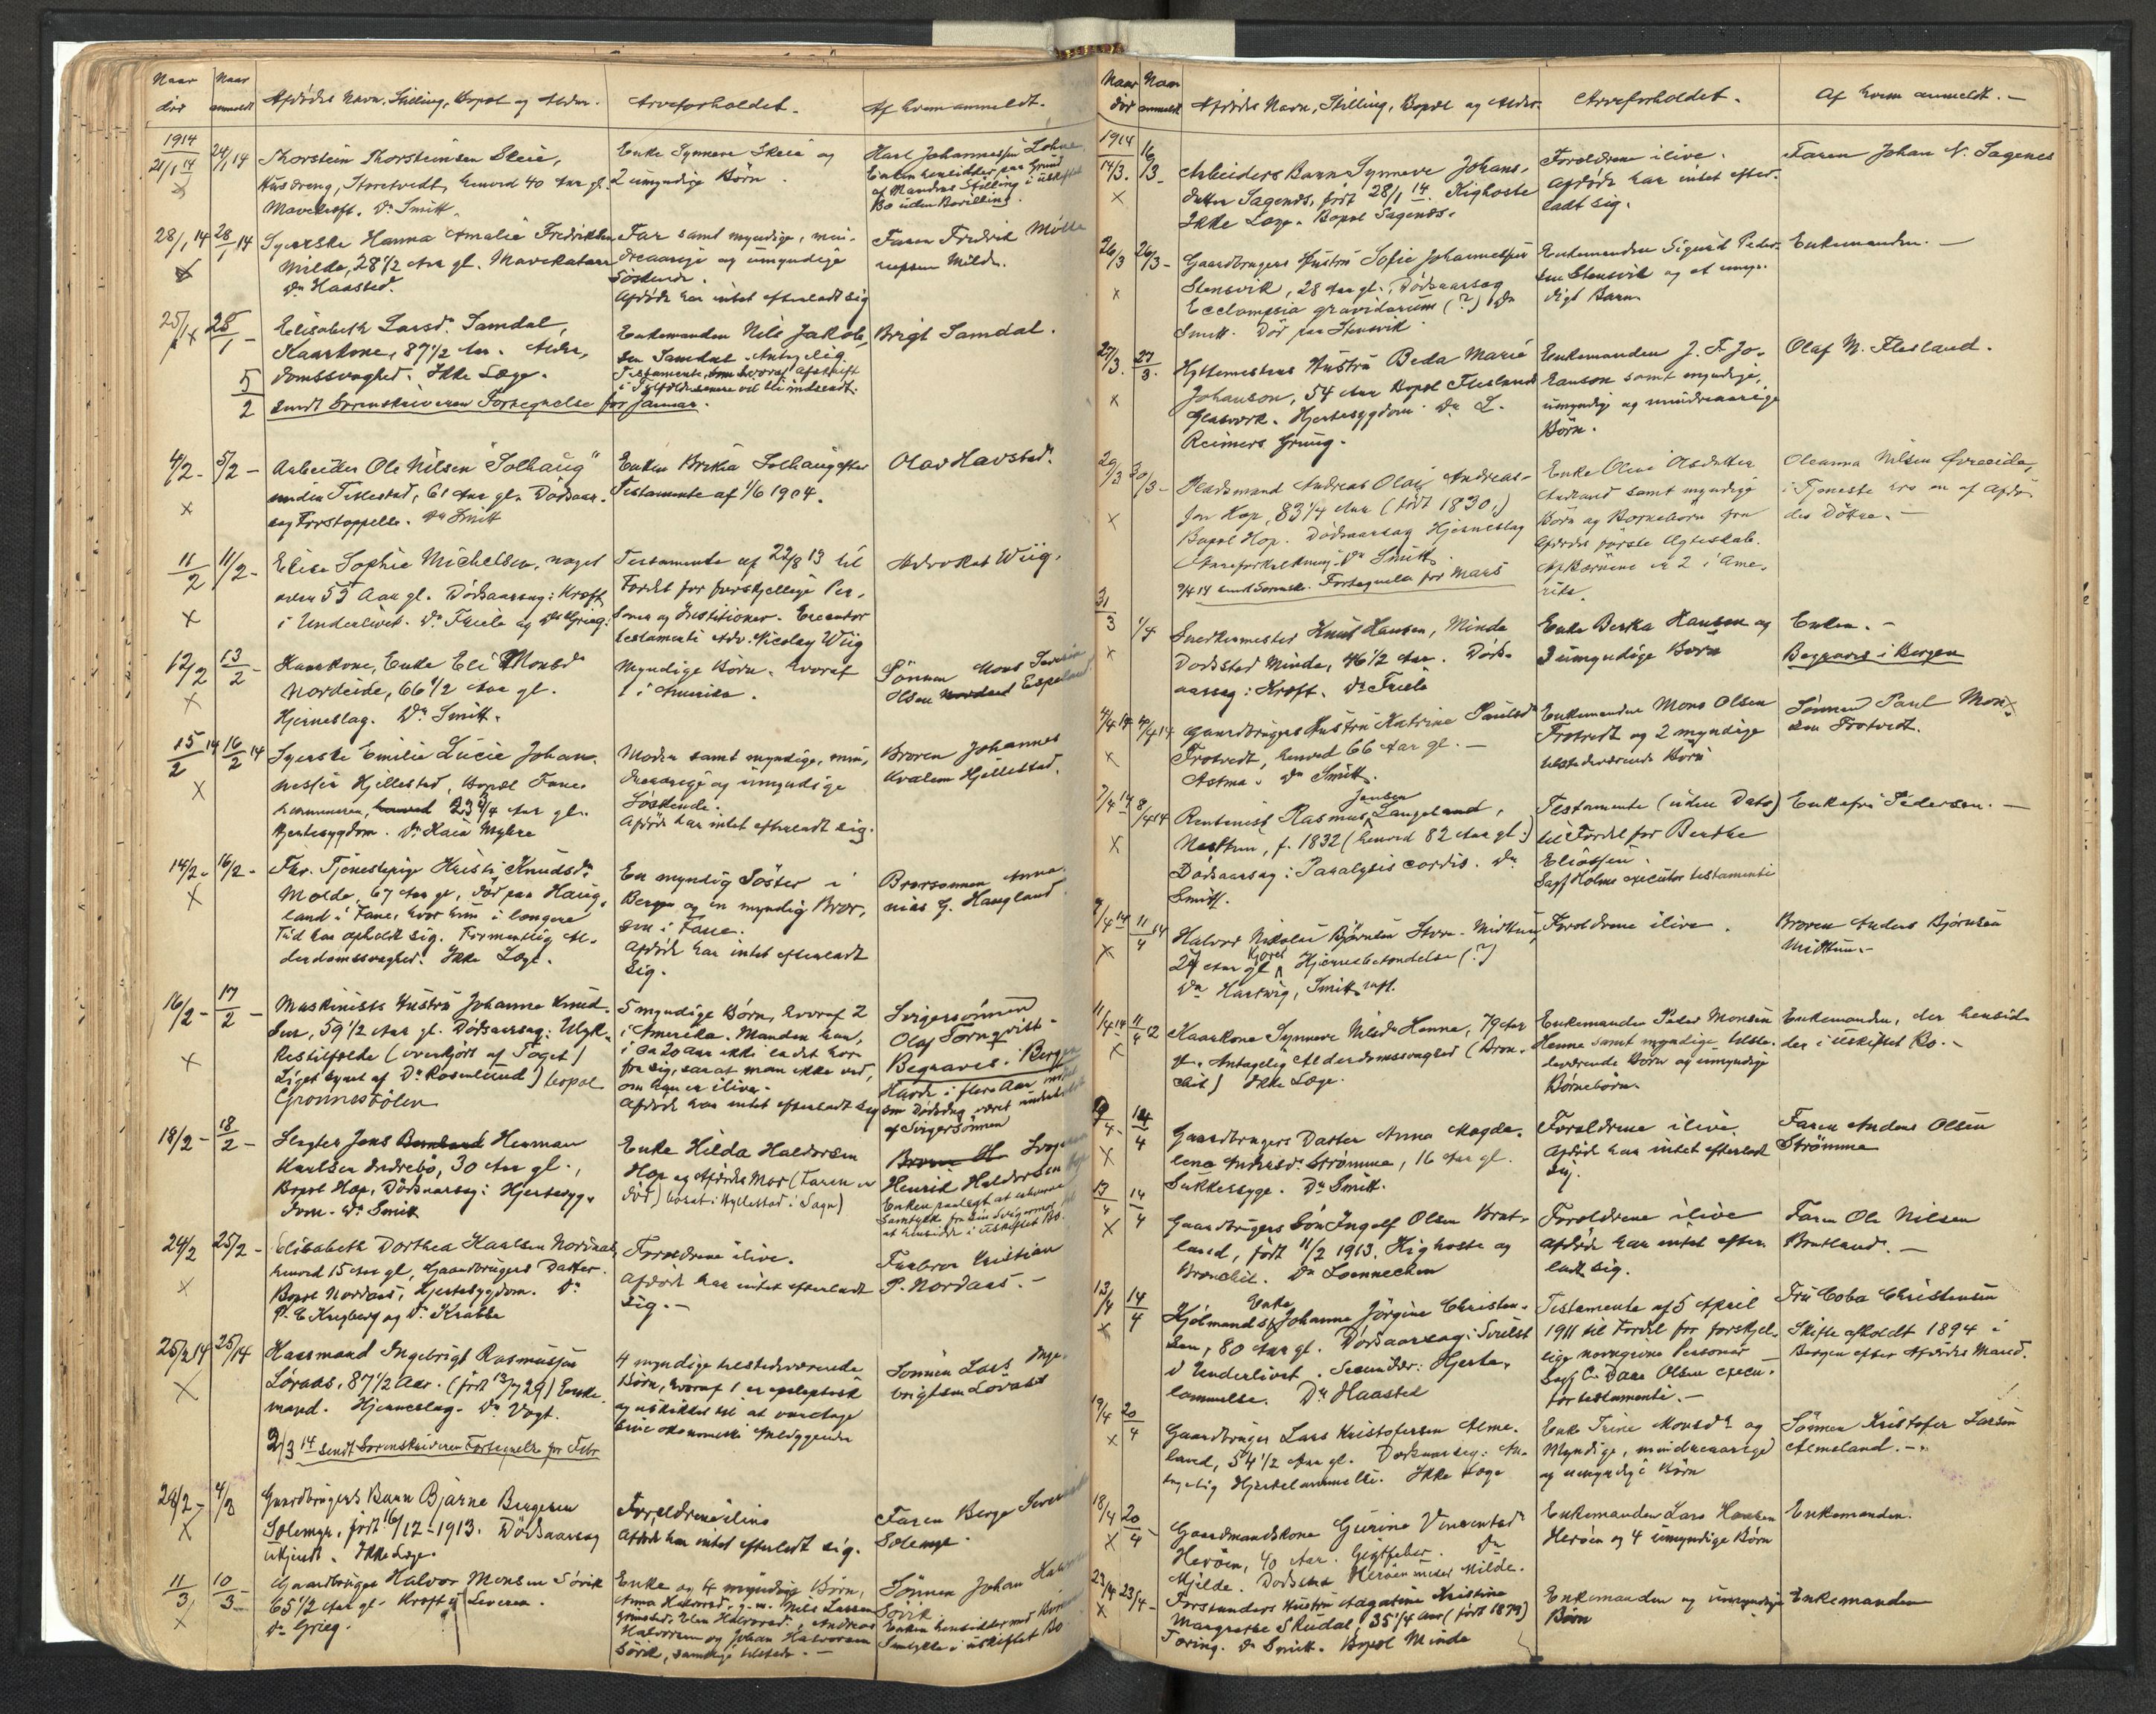 Naar død
Naar anmeldt
Afdødes Navn, Stilling, Bopæl og Alder.
Arveforholdet.
Af hvem anmeldt.
1914
21/1 14
24/1 14
Thorstein Thorsteinsen Skeie,
Husdreng, Storetvedt, henved 40 Aar gl.
Mavekræft. Dr Smitt.
Enke Synneve Skeie og
2 umyndige Børn.
Karl Johannessen Lohne
Enken hensidder paa Grund
af Mandens Stilling i uskiftet
Bo uden Bevilling.
28/1 14
28/1 14
Syerske Hanna Amalie Fredriksen
Milde, 28 1/2 Aar gl. Mavekatarr
Dr Haasted.
Far samt myndige, min-
dreaarige og umyndige
Søskende.
Afdøde har intet efterladt sig
Faren Fredrik
Milde.
25/1
28/1 -
Elisabeth Larsdr Samdal,
Kaarkone, 87 1/2 Aar. Alder-
domssvaghed. Ikke Læge.
Enkemanden Nils Jakob-
sen Samdal. Antagelig
Testamente, hvoraf Afskrift
i Tilfælde senere vil bli indsendt.
Brigt Samdal.
5/2 sendt Sorenskriveren Fortegnelse for Januar.
4/2 -
5/2 -
Arbeider Ole Nilsen "Solhaug"
under Titlestad, 61 Aar gl. Dødsaar-
sag Forstoppelse. Dr Smitt
Enken Brita Solhaug efter
Testamente af 1/6 1904.
Olav Havstad.
11/2
11/2 -
Elise Sophie Michelsen, noget
over 55 Aar gl. Dødsaarsag: Kræft
i Underlivet. Dr Friele og Dr Grieg.
Testamente af 22/8 13 til
Fordel for forskjellige Per-
soner og Institutioner. Executor
testamenti Adv. Nicolay Wiig
Advokat Wiig.
12/2
13/2 -
Kaarkone, Enke Eli Monsdr
Nordeide, 66 1/2 Aar gl.
Hjerneslag. Dr Smitt.
Myndige Børn. Hvoraf
1 i Amerika.
Sønnen Mons
Olsen Espeland
15/2 14
16/2 14
Syerske Emilie Lucie Johan-
nessen Hjellestad, Bopæl Fane-
hammeren, 23 3/4 Aar gl.
Hjertesygdom. Dr Kaia Myhre
Moder samt myndige, min-
dreaarige og umyndige
Søskende.
Afdøde har intet efterladt sig.
Broren Johannes
Kvalem Hjellestad.
14/2 -
16/2 -
Fhv. Tjenestepige Kristi Knudsdr
Molde, 67 Aar gl, død paa Haug-
land i Fane, hvor hun i længere
Tid har opholdt sig. Formentlig Al-
derdomssvaghed. Ikke Læge.
En myndig Søster i
Bergen og en myndig Bror,
i Fane.
Afdøde har intet efterladt
sig.
Brorsønnen Anna-
nias G. Haugland
16/2 -
17/2 -
Maskinists Hustru Johanne Knud-
sen, 59 1/2 Aar gl. Dødsaarsag: Ulyk-
kestilfælde (overkjørt af Toget)
Liget synet af Dr Rosenlund) Bopæl
5 myndige Børn, hvoraf 2
i Amerika. Manden har,
i ca 20 Aar ikke ladet høre
fra sig, saa at man ikke ved,
om han er ilive.
Afdøde har intet efterladt sig
Svigersønnen
Olaf Tornqvist.
Begraves i Bergen
Havde i flere Aar
sin Dødsdag været underholdt
af Svigersønnen
18/2 -
18/2 -
Slagter Jens Herman
Karlsen Indrebø, 30 Aar gl.,
Bopæl Hop, Dødsaarsag: Hjertesyg-
dom. Dr Smitt
Enke Hilda Haldorsen
Hop og Afdødes Mor (Faren er
død) bosat i Hyllestad i Sogn)
Henrik Haldorsen
Enken paalagt at erhverve
Samtykke fra sin Svigermor
at hensidde i uskiftet Bo.
24/2
25/2 -
Elisabeth Dorthea Karlsen Nordaas
henved 15 Aar gl, Gaardbrugers Datter.
Bopæl Nordaas, Hjertesygdom. Dr
P. E. Krogberg og Dr Krabbe
Forældrene ilive.
Afdøde har intet efterladt
sig. -
Farbror Kristian
P. Nordaas. -
25/2 14
25/ 14
Kaarmand Ingebrigt Rasmussen
Løvaas, 87 1/2 Aar. Enke-
mand. Hjerneslag. Dr Vogt.
4 myndige tilstedeværende
Børn, hvoraf 1 er epileptisk
og uskikket til at varetage
sine økonomiske Anliggender
Sønnen Lars Inge-
brigtsen Løvaas
2/3 14 sendt Sorenskriveren Fortegnelse for Febr
28/2 -
4/3
Gaardbrugers Barn Bjarne Bergesen
Solemyr, født 16/12 - 1913. Dødsaarsag
ukjendt. Ikke Læge.
Forældrene ilive
Afdøde har intet efterladt sig.
Faren Berge
Solemyr.
11/3
10/3 -
Gaardbruger Halvor Monsen Sørvik
65 1/2 Aar gl. Kræft i Leveren.
Dr Grieg.
Enke og 4 myndige Børn,
Anna Halvorsd., g. m. Nils Larsen
Grimstad, Elen Halvorsd., Andreas
Halvorsen og Johan Halvorsen
Sørvik, samtlige tilstede. -
Sønnen Johan
Sørvik.
Enken hensidder med Børnenes
Samtykke i uskiftet Bo
Naar død
Naar anmeldt
Afdødes Navn, Stilling, Bopæl og Alder.
Arveforholdet.
Af hvem anmeldt. -
1914
14/3.
16/3 -
Arbeiders Barn Synneve Johans-
datter Sagenes, født 28/1 14. Kighoste
Ikke Læge. Bopæl Sagenes.
Forældrene ilive.
Afdøde har intet efter-
ladt sig.
Faren Johan N. Sagenes
26/3
26/3 -
Gaardbrugers Hustru Sofie Johannessen
Stensvik, 28 Aar gl., Dødsaarsag
Ecclampsia gravidarum (?) Dr
Smitt. Død paa Stensvik
Enkemanden Sigurd Peder-
sen Stensvik og et umyn-
digt Barn
Enkemanden. -
27/3.
27/3.
Hyttemesters Hustru Beda Marie
Johanson, 54 Aar Bopæl Flesland
Glasverk. Hjertesygdom. Dr L.
Reimers Grung.
Enkemanden J. F. Jo-
hanson samt myndige,
umyndige og mindreaarige
Børn.
Olaf M. Flesland.
29/3
30/3 -
Kaarmand Andreas Olai Andreas-
sen Hop, 83 1/4 Aar (født 1830.)
Bopæl Hop. Dødsaarsag Hjerneslag
Aareforkalkning Dr Smitt.
Enke Oline Olsdatter
samt myndige
Børn og Børnebørn fra
Afdødes første Ægteskab.
Af Børnene er 2 i Ame-
rika.
Oleanna Nilsen Øvreeide,
i Tjeneste hos en af Afdø-
des Døttre. -
/4 14 sendt Sorenskr. Fortegnelse for Mars
31/3
1/4
Snedkermester Knut Hansen, Minde
Dødssted Minde, 46 1/2 Aar. Døds-
aarsag: Kræft. Dr Friele
Enke Bertha Hansen og
3 umyndige Børn
Enken. -
Begraves i Bergen
4/4 14
4/4 14
Gaardbrugers Hustru Katrine Paulsdr
Frotvedt, henved 66 Aar gl. -
Astma. Dr Smitt.
Enkemanden Mons Olsen
Frotvedt og 2 myndige
tilstedeværende Børn
Sønnen Paul Mon-
sen Frotvedt.
7/4 14
8/4 14
Rentenist Rasmus Jensen Langeland,
Nesttun, f. 1832 (henved 82 Aar gl:)
Dødsaarsag: Paralysis cordis. Dr
Smitt.
Testamente (uden Dato)
til Fordel for Berthe
Eliassen.
Sagf Holme executor testamenti
Enkefru Pedersen. -
9/4 14
11/4 14
Halvor Nikolai Bjørnsen Store-Midttun
24 Aar gl Hjernebetændelse (?)
Dr Hartwig, Smitt
Forældrene ilive.
Broren Anders Bjørnsen
Midttun. -
11/4 14
11/4
Kaarkone Synneve Nilsdr Henne, 79 Aar
gl. Antagelig Alderdomssvaghed (Bron-
chit) Ikke Læge.
Enkemanden Peder Monsen
Henne samt myndige tilste-
deværende Børn og umyndige
Børnebørn.
Enkemanden, der hensid-
der i uskiftet Bo. -
9/4 -
14/4
Gaardbrugers Datter Anna Magda-
lena Andersdr Strømme, 16 Aar gl.
Sukkersyge. Dr Smitt.
Forældrene ilive.
Afdøde har intet efterladt
sig.
Faren Anders Olsen
Strømme
13/4
14/4
Gaardbrugers Søn Ingolf Olsen Brat-
land, født 11/2 1913. Kighoste og
Bronchit. Dr Loennecken
Forældrene ilive
Afdøde har intet efter-
ladt sig.
Faren Ole Nilsen
Bratland. -
13/4
14/4
Kjølmands Enke Johanna Jørgine Christen-
sen, 80 Aar gl. Dødsaarsag: Svulst
i Underlivet. Secundær: Hjerte-
lammelse. Dr Haasted
Testamente af 5 April
1911 til Fordel for forskjel-
lige navngivne Personer
Sagf C. Daae Olsen execu-
tor testamenti. -
Fru Coba Christensen
Skifte afholdt 1894 i
Bergen efter Afdødes Mand.
19/4
20/4
Gaardbruger Lars Kristofersen Alme-
land, 54 1/2 Aar gl. Dødsaarsag: An-
tagelig Hjertelammelse. Ikke Læge
Enke Trine Monsdr og
Myndige, mindreaarige
og umyndige Børn
Sønnen Kristofer Larsen
Almeland. -
18/4
20/4 -
Gaardmandskone Gurine Vincentsdr
Herøen, 40 Aar. Gigtfeber. Dr
Mjelde. Dødssted Herøen under Milde.
Enkemanden Lars Hansen
Herøen og 4 umyndige Børn
Enkemanden.
23/4
23/4 -
Forstanders Hustru Agatine Kristine
Margrethe Skudal, 35 1/4 Aar (født 1879)
Tæring. Dr Smitt. Bopæl Minde
Enkemanden og umyndige
Børn
Enkemanden